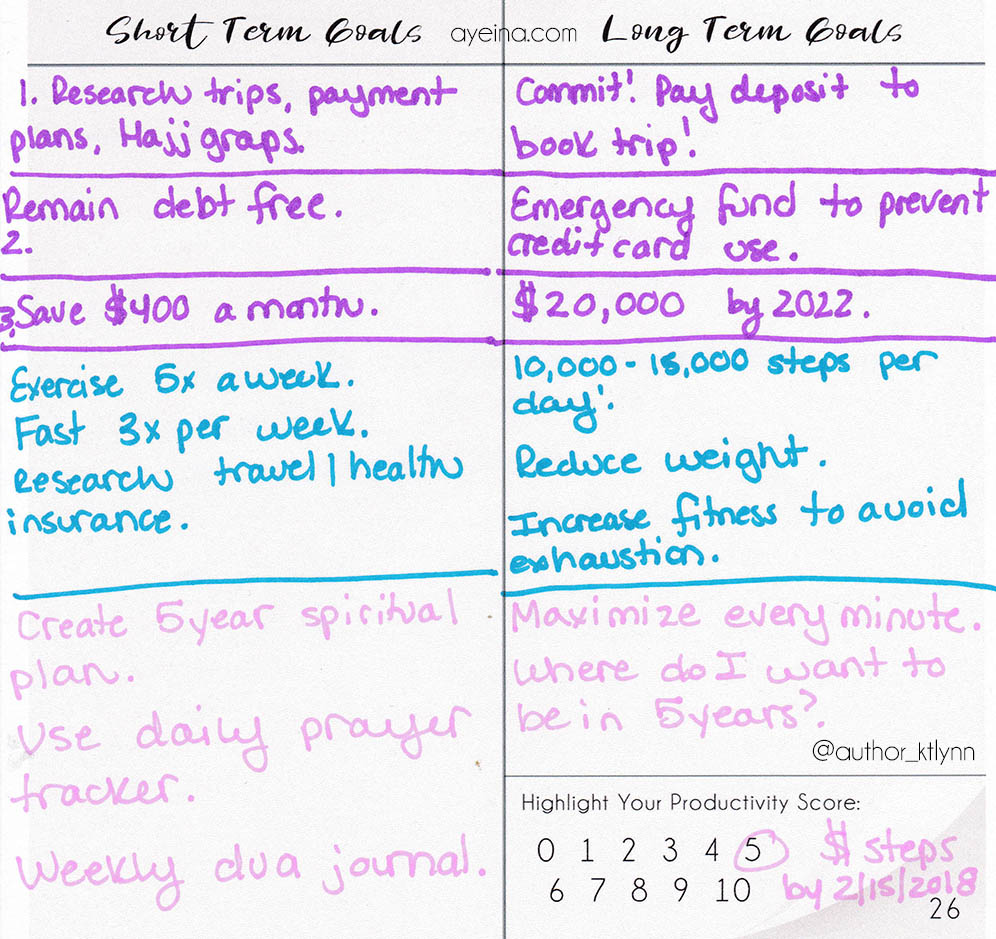 Short Term Goals ayeina.com Long Term Goals
1. Research trips, payment
plans, Hajj graps.
Remain debt free.
2.
3. Save $400 a month.
Exercise 5x a week.
Fast 3x per week.
Research travel | health
insurance.
Create 5 year spiritual
plan.
Use daily prayer
tracker.
Weekly dua journal.
Commit! Pay deposit to
book trip!
Emergency fund to prevent
credit card use.
$20,000 by 2022.
10,000 - 15,000 steps per
day!
Reduce weight.
Increase fitness to avoid
exhaustion.
Maximize every minute.
Where do I want to
be in 5 years?
@author_ktlynn
Highlight Your Productivity Score:
0 1 2 3 4 5 $ steps
6 7 8 9 10 by 2/15/2018
26